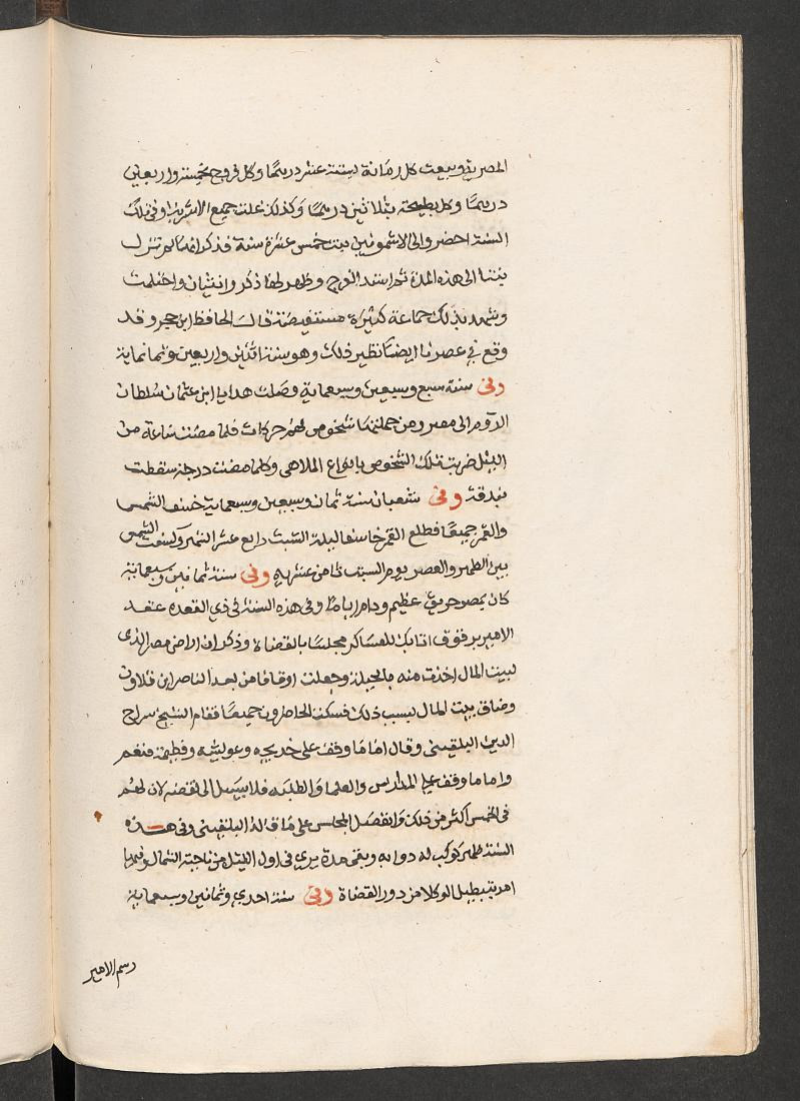 المصرية وبيعت كل رمانة بستة عشر درهمًا وكل فروج بخمسة واربعين
درهمًا وكل بطيخة بثلاثين درهمًا وكذلك غلت جميع الاشربة وفي تلك
السنة احضر والى الاشمونين بنت خمس عشرة سنة فذكر انها لم تزل
بنتا الى هذه المدة ثم استد الفرج وظهر لها ذكر وانثيان واحتلمت
وشهد بذلك جماعة كثيرة مستفيضة قال الحافظ ابن حجر وقد
وقع في عصرنا ايضًا نظير ذلك وهو سنة اثنين واربعين وثمانماية
وفى سنة سبع وسبعين وسبعماية وصلت هدايا ابن عثمان سلطان
الروم الى مصر ومن جملتها شخوص لهم حركات فلما مضت ساعة من
الليل ضربت تلك الشخوص بانواع الملاهى وكلما مضت درجة سقطت
بندقة وفى شعبان سنة ثمان وسبعين وسبعماية خسف الشمس
والقمر جميعًا فطلع القمر خاسفا ليلة السبت رابع عشر الشهر وكسفت الشمس
بين الظهر والعصر يوم السبت ثامن عشريه وفى سنة ثمانين وسبعماية
كان بمصر حريق عظيم ودام اياما وفى هذه السنة فى ذي القعدة عقد
الامير برقوق اتابك العساكر مجلسًا بالقضاة وذكر ان اراضى مصر الذى
لبيت المال اخذت منه بالحيلة وجعلت اوقافا من بعد الناصر ابن قلاون
وضاق بيت المال بسبب ذلك فسكت الحاضرون جميعًا فقام الشيخ سراج
الدين البلقينى وقال اما ما وقف على خديجه وعويشه وفطيمة فنعم
واما ما وقف على المدارس والعلما والطلبه فلا سبيل الى نقضه لان لهم
فى الخمس اكثر من ذلك وانفصل المجلس على ما قاله البلقينى وفى هذه
السنة ظهر كوكب له دوابه وبقى مدة يرى فى اول الليل من ناحية الشمال وفيها
امر بتبطيل الوكلا من دور القضاة وفى سنة احدى وثمانين وسبعماية
رسم الامير